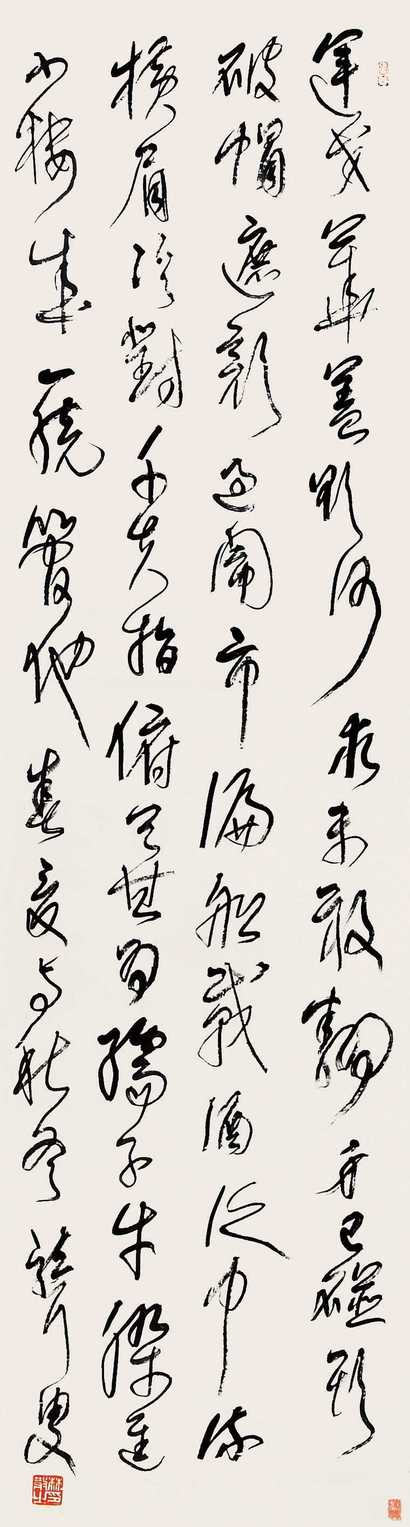 運交華蓋欲何求未敢翻身已碰頭
破帽遮顏過鬧市漏船載酒泛中流
橫眉冷對千夫指俯首甘為孺子牛躲進
小樓成一統管他春夏与秋冬 叟